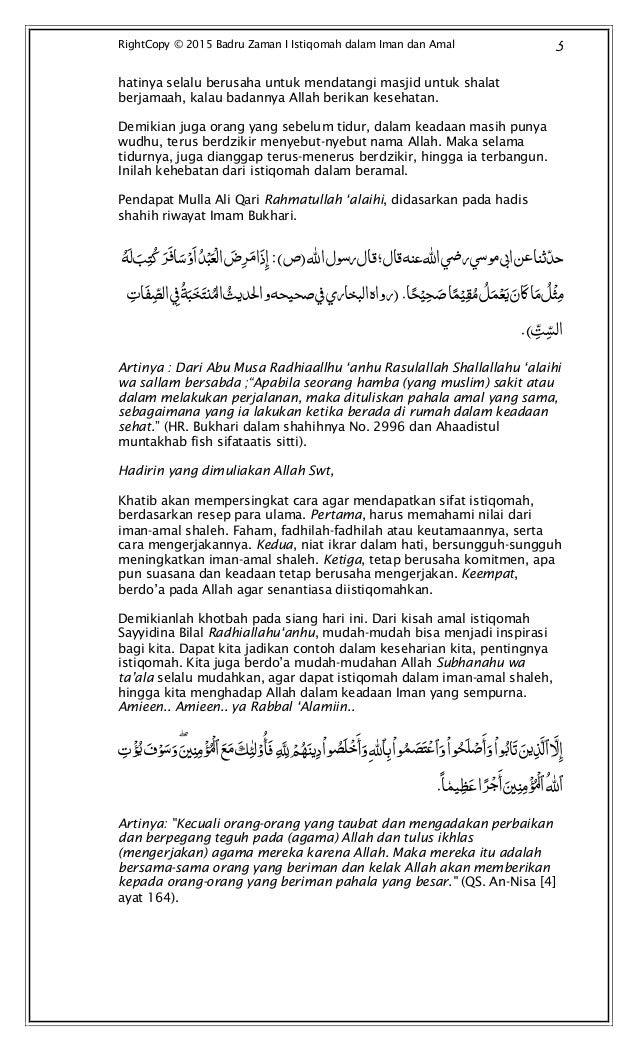 RightCopy © 2015 Badru Zaman I Istiqomah dalam Iman dan Amal 5
hatinya selalu berusaha untuk mendatangi masjid untuk shalat
berjamaah, kalau badannya Allah berikan kesehatan.
Demikian juga orang yang sebelum tidur, dalam keadaan masih punya
wudhu, terus berdzikir menyebut-nyebut nama Allah. Maka selama
tidurnya, juga dianggap terus-menerus berdzikir, hingga ia terbangun.
Inilah kehebatan dari istiqomah dalam beramal.
Pendapat Mulla Ali Qari Rahmatullah ‘alaihi, didasarkan pada hadis
shahih riwayat Imam Bukhari.
حدّثنا عن ابى موسي رضي الله عنه قال؛ قال رسول الله (ص): إِذَا مَرِضَ الْعَبْدُ اَوْ سَافَرَ كُتِبَ لَهُ
مِثْلُ مَا كَانَ يَعْمَلُ مُقِيْمًا صَحِيْحًا. (رواه البخاري في صحيحه و الحديثُ الْمُنْتَخَبَةُ فِي الصِّفَاتِ
السِّتِّ).
Artinya : Dari Abu Musa Radhiaallhu ‘anhu Rasulallah Shallallahu ‘alaihi
wa sallam bersabda ;“Apabila seorang hamba (yang muslim) sakit atau
dalam melakukan perjalanan, maka dituliskan pahala amal yang sama,
sebagaimana yang ia lakukan ketika berada di rumah dalam keadaan
sehat.” (HR. Bukhari dalam shahihnya No. 2996 dan Ahaadistul
muntakhab fish sifataatis sitti).
Hadirin yang dimuliakan Allah Swt,
Khatib akan mempersingkat cara agar mendapatkan sifat istiqomah,
berdasarkan resep para ulama. Pertama, harus memahami nilai dari
iman-amal shaleh. Faham, fadhilah-fadhilah atau keutamaannya, serta
cara mengerjakannya. Kedua, niat ikrar dalam hati, bersungguh-sungguh
meningkatkan iman-amal shaleh. Ketiga, tetap berusaha komitmen, apa
pun suasana dan keadaan tetap berusaha mengerjakan. Keempat,
berdo’a pada Allah agar senantiasa diistiqomahkan.
Demikianlah khotbah pada siang hari ini. Dari kisah amal istiqomah
Sayyidina Bilal Radhiallahu‘anhu, mudah-mudah bisa menjadi inspirasi
bagi kita. Dapat kita jadikan contoh dalam keseharian kita, pentingnya
istiqomah. Kita juga berdo’a mudah-mudahan Allah Subhanahu wa
ta’ala selalu mudahkan, agar dapat istiqomah dalam iman-amal shaleh,
hingga kita menghadap Allah dalam keadaan Iman yang sempurna.
Amieen.. Amieen.. ya Rabbal ‘Alamiin..
إِلَّا ٱلَّذِينَ تَابُوا۟ وَأَصْلَحُوا۟ وَٱعْتَصَمُوا۟ بِٱللَّهِ وَأَخْلَصُوا۟ دِينَهُمْ لِلَّهِ فَأُو۟لَٰٓئِكَ مَعَ ٱلْمُؤْمِنِينَ ۖ وَسَوْفَ يُؤْتِ
ٱللَّهُ ٱلْمُؤْمِنِينَ أَجْرًا عَظِيمًا.
Artinya: "Kecuali orang-orang yang taubat dan mengadakan perbaikan
dan berpegang teguh pada (agama) Allah dan tulus ikhlas
(mengerjakan) agama mereka karena Allah. Maka mereka itu adalah
bersama-sama orang yang beriman dan kelak Allah akan memberikan
kepada orang-orang yang beriman pahala yang besar." (QS. An-Nisa [4]
ayat 164).